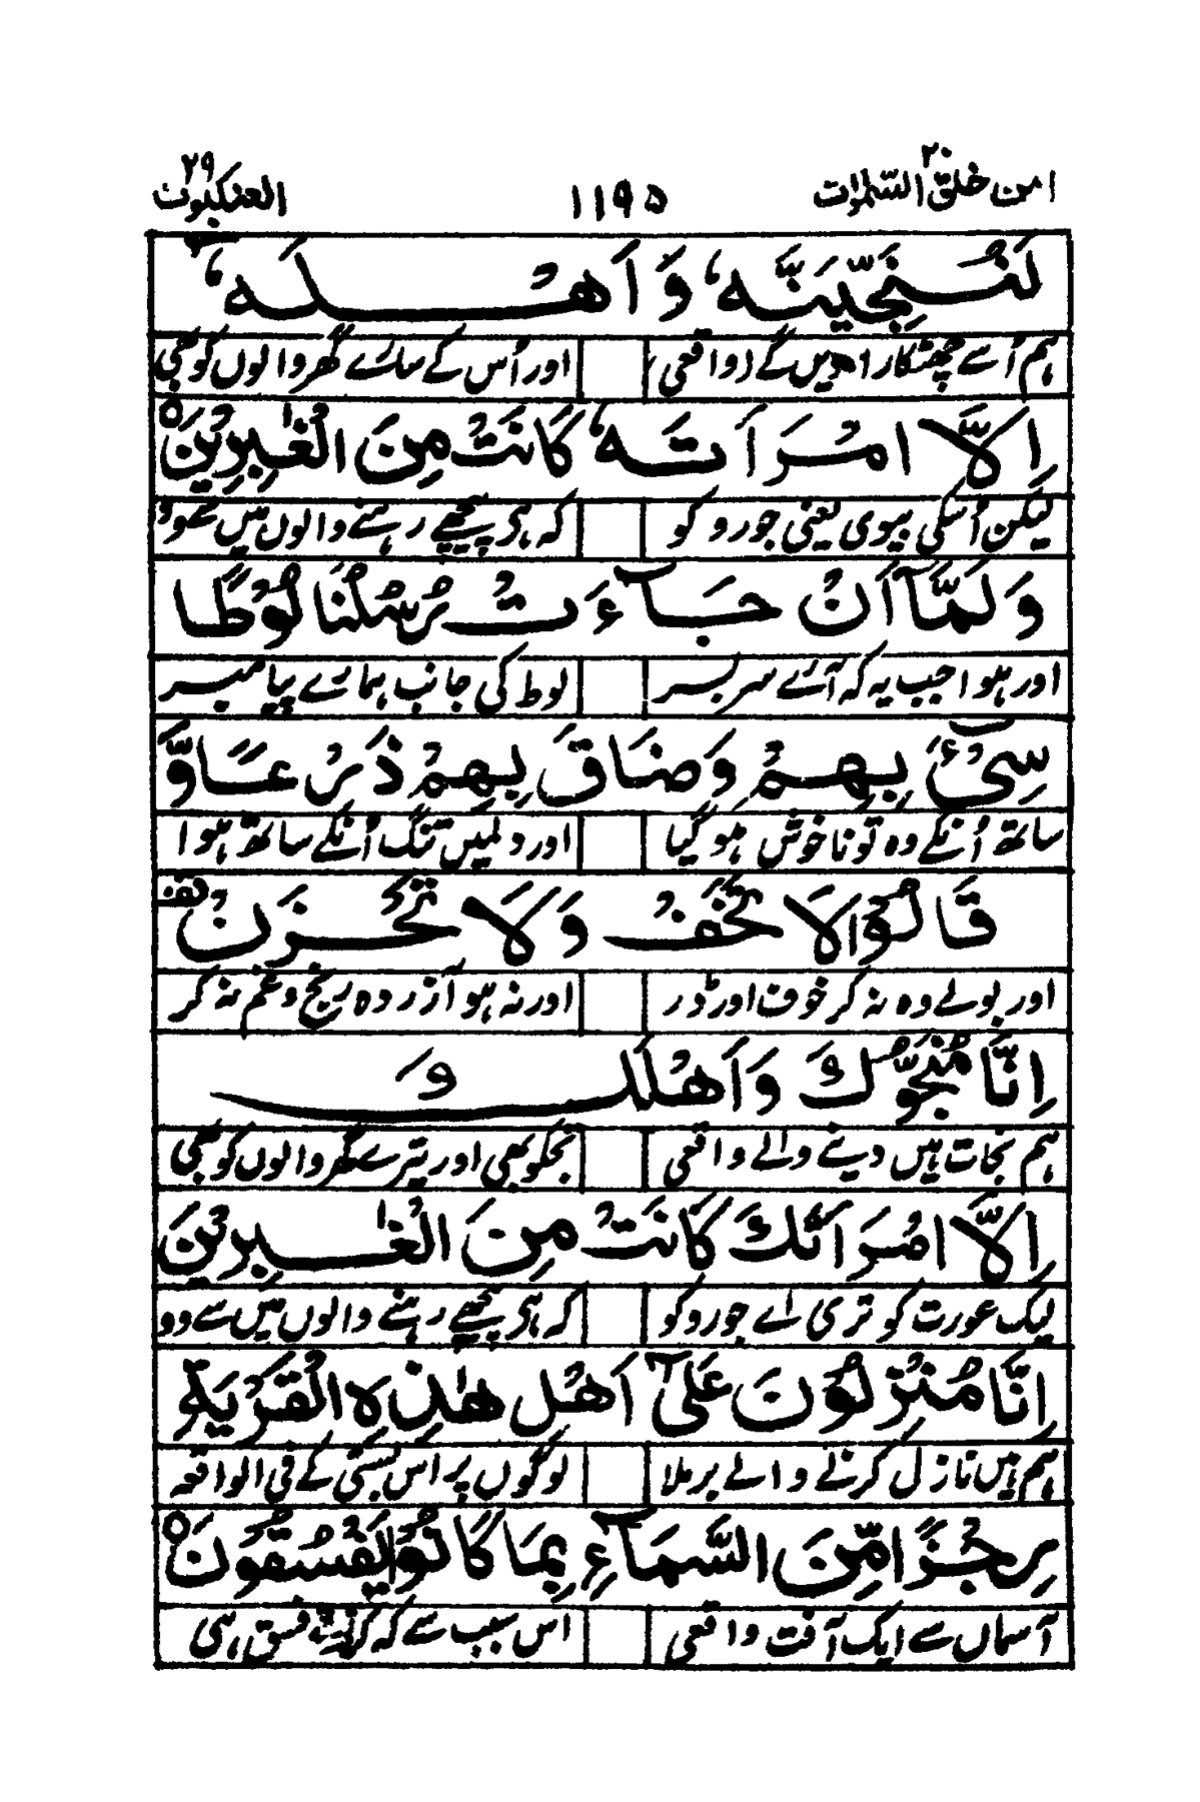 امن خلق السمٰوات ٢٠ ١١٩۵ العنکبوت ٢٩
لَنُنَجِّيَنَّهٗ وَ اَهْلَهٗ
ہم اُسے چھٹکارا دیں گے (واقعی) اور اُس کے سارے گھر والوں کو بھی
اِلَّا امْرَاَتَهٗ كَانَتْ مِنَ الْغٰبِرِيْنَ
لیکن اُسکی بیوی یعنی جورو کو کہ ہی پیچھے رہنے والوں میں سے وہ
وَ لَمَّاۤ اَنْ جَآءَتْ رُسُلُنَا لُوْطًا
اور ہوا جب یہ کہ آئے سربسر لوط کی جانب ہمارے پیامبر
سِیْٓءَ بِهِمْ وَضَاقَ بِهِمْ ذَرْعًا وَّ
ساتھ اُنکے وہ تو ناخوش ہو گیا اور دلمیں تنگ اُنکے ساتھ ہوا
قَالُوْا لَا تَخَفْ وَ لَا تَحْزَنْ
اور بولے وہ نہ کر خوف اور ڈر اور نہ ہو آزردہ رنج و غم نہ کر
اِنَّا مُنَجُّوْكَ وَ اَهْلَكَ
ہم نجات ہیں دینے والے واقعی تجکو بھی اور تیرے گھر والوں کو بھی
اِلَّا امْرَاَتَكَ كَانَتْ مِنَ الْغٰبِرِيْنَ
لیک عورت کو تری اے جورو کو کہ ہی پیچھے رہنے والوں میں سے وو
اِنَّا مُنْزِلُوْنَ عَلٰۤى اَهْلِ هٰذِهِ الْقَرْيَةِ
ہم ہیں نازل کرنے والے برملا لوگوں پر اس بستی کے فی الواقعہ
رِجْزًا مِّنَ السَّمَآءِ بِمَا كَانُوْا يَفْسُقُوْنَ
آسماں سے ایک آفت واقعی اس سبب سے کہ کرتے فسق ہی